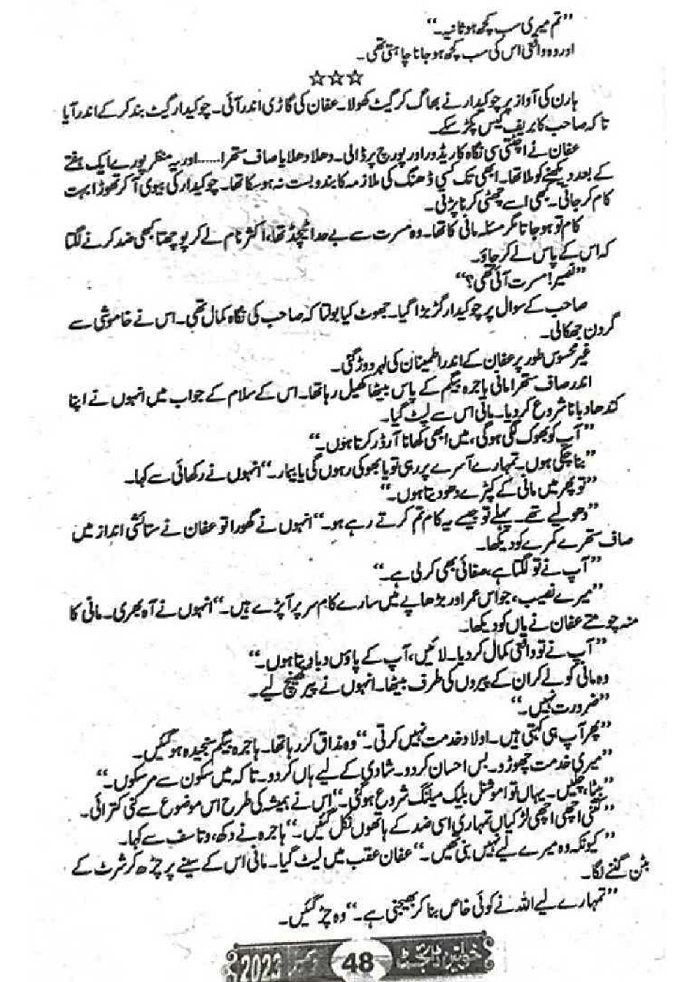 ”تم میری سب کچھ ہو ثانیہ۔“
اور وہ واقعی اس کی سب کچھ ہو جانا چاہتی تھی۔
☆☆☆
ہارن کی آواز پر چوکیدار نے بھاگ کر گیٹ کھولا۔ عفان کی گاڑی اندر آئی۔ چوکیدار گیٹ بند کر کے اندر آیا
تاکہ صاحب کا بریف کیس پکڑ سکے۔
عفان نے اچٹتی سی نگاہ کاریڈور اور پورچ پر ڈالی۔ دھلا دھلایا صاف ستھرا......اور یہ منظر پورے ایک ہفتے
کے بعد دیکھنے کو ملا تھا۔ ابھی تک کسی ڈھنگ کی ملازمہ کا بندوبست نہ ہو سکا تھا۔ چوکیدار کی بیوی آ کر تھوڑا بہت
کام کر جاتی۔ کبھی اسے چھٹی کرنا پڑتی۔
کام تو ہو جاتا مگر مسئلہ مانی کا تھا۔ وہ مسرت سے بے حد اٹیچڈ تھا، اکثر نام لے کر پوچھتا کبھی ضد کرنے لگتا
کہ اس کے پاس لے کر جاؤ۔
”نصیر! مسرت آئی تھی؟“
صاحب کے سوال پر چوکیدار گڑبڑا گیا۔ جھوٹ کیا بولتا کہ صاحب کی نگاہ کمال تھی۔ اس نے خاموشی سے
گردن جھکا لی۔
غیر محسوس طور پر عفان کے اندر اطمینان کی لہر دوڑ گئی۔
اندر صاف ستھرا مانی ہاجرہ بیگم کے پاس بیٹھا کھیل رہا تھا۔ اس کے سلام کے جواب میں انہوں نے اپنا
کندھا دبانا شروع کر دیا۔ مانی اس سے لپٹ گیا۔
”آپ کو بھوک لگی ہو گی، میں ابھی کھانا آرڈر کرتا ہوں۔“
”بنا چکی ہوں۔ تمہارے آسرے پر رہی تو یا بھوکی رہوں گی یا بیمار۔“ انہوں نے رکھائی سے کہا۔
”تو پھر میں مانی کے کپڑے دھو دیتا ہوں۔“
”دھو لیے تھے۔ پہلے تو جیسے یہ کام تم کرتے رہے ہو۔“ انہوں نے گھورا تو عفان نے ستائشی انداز میں
صاف ستھرے کمرے کو دیکھا۔
”آپ نے تو لگتا ہے، صفائی بھی کر لی ہے۔“
”میرے نصیب، جو اس عمر اور بڑھاپے میں سارے کام سر پر آ پڑے ہیں۔“ انہوں نے آہ بھری۔ مانی کا
منہ چومتے عفان نے ماں کو دیکھا۔
”آپ نے تو واقعی کمال کر دیا۔ لائیں، آپ کے پاؤں دبا دیتا ہوں۔“
وہ مانی کو لے کر ان کے پیروں کی طرف بیٹھا۔ انہوں نے پیر کھینچ لیے۔
”ضرورت نہیں۔“
”پھر آپ ہی کہتی ہیں۔ اولاد خدمت نہیں کرتی۔“ وہ مذاق کر رہا تھا۔ ہاجرہ بیگم سنجیدہ ہو گئیں۔
”میری خدمت چھوڑو۔ بس احسان کر دو۔ شادی کے لیے ہاں کر دو۔ تاکہ میں سکون سے مر سکوں۔“
”بیٹا چکیں۔ یہاں تو اموشنل بلیک میلنگ شروع ہو گئی۔“ اس نے ہمیشہ کی طرح اس موضوع سے کنی کترائی۔
”کتنی اچھی اچھی لڑکیاں تمہاری اسی ضد کے ہاتھوں نکل گئیں۔“ ہاجرہ نے دکھ، و تاسف سے کہا۔
”کیونکہ وہ میرے لیے نہیں بنی تھیں۔“ عفان عقب میں لیٹ گیا۔ مانی اس کے سینے پر چڑھ کر شرٹ کے
بٹن گننے لگا۔
”تمہارے لیے اللہ نے کوئی خاص بنا کر بھیجنی ہے۔“ وہ چڑ گئیں۔
خواتین ڈائجسٹ 48 دسمبر 2023